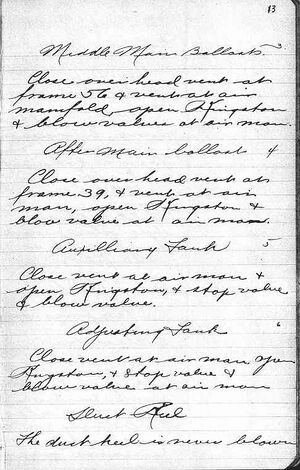 13
Middle Main Ballast. 3
Close over head vent at
frame 56 & vent at air
manifold, open Kingston
& blow valves at air man.
After Main ballast 4
Close over head vent at
frame 39, & vent at air
man, open Kingston &
blow valve at air man.
Auxilliary Tank 5
Close vent at air man &
open Kingston, & stop valve
& blow valve.
Adjusting Tank 6
Close vent at air man open
Kingston, & stop valve &
blow valve at air man
Duct Keel
The duct keel is never blown